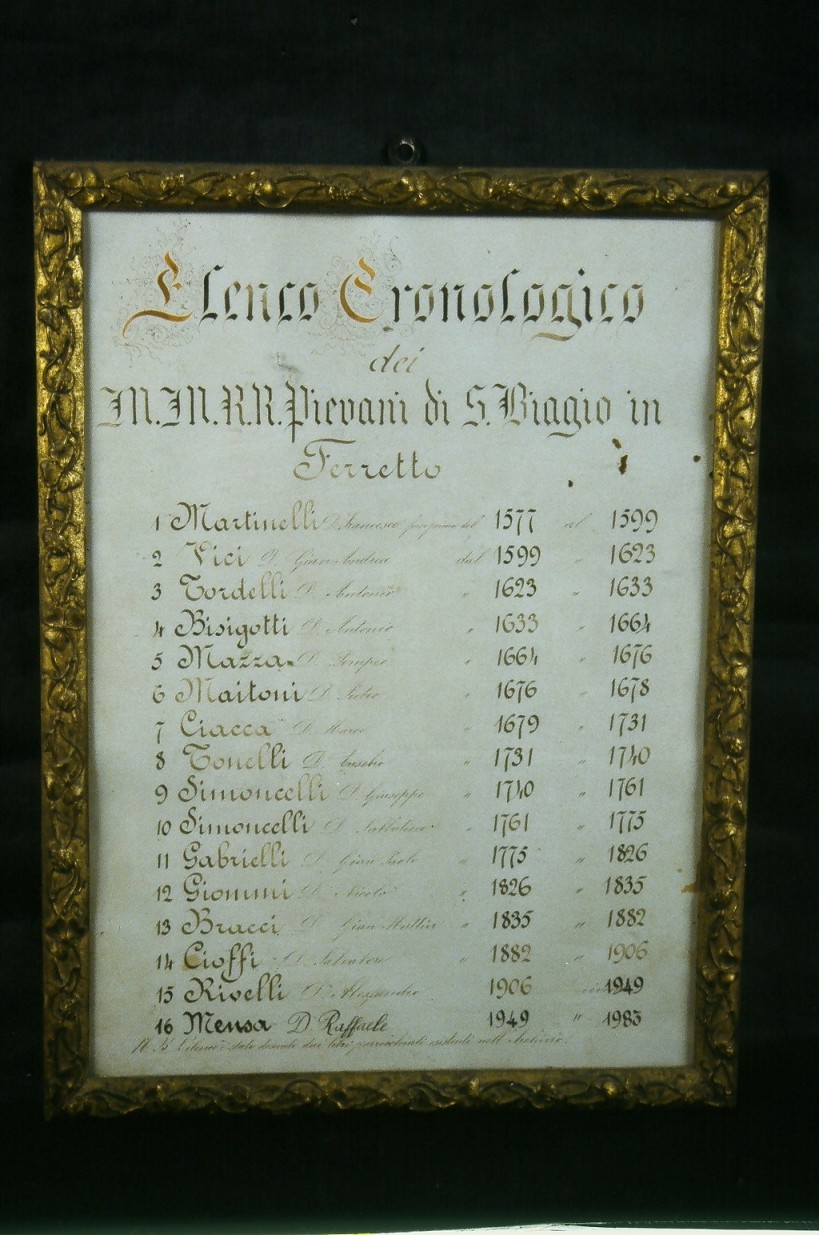 Elenco Cronologico
dei
M.M.R.R. Pievani di S. Biagio in
Ferretto
1 Martinelli D. Francesco del 1577 al 1599
2 Vici D. Gian Andrea dal 1599 " 1623
3 Tordelli D. Antonio " 1623 " 1633
4 Bisigotti D. Antonio " 1633 " 1664
5 Mazza D. " 1664 " 1676
6 Maitoni D. Pietro " 1676 " 1678
7 Ciacca D. Marco " 1679 " 1731
8 Tonelli D. Eusebio " 1731 " 1740
9 Simoncelli D. Giuseppe " 1740 " 1761
10 Simoncelli D. Sabbatino " 1761 " 1775
11 Gabrielli D. Gian Paolo " 1775 " 1826
12 Giommi D. Nicola " 1826 " 1835
13 Bracci D. Gian Mattia " 1835 " 1882
14 Cioffi D. Salvatore " 1882 " 1906
15 Rivelli D. Alessandro 1906 1949
16 Mensa D. Raffaele 1949 " 1983
N.B. L'elenco è stato desunto dai libri parrocchiali esistenti nell'Archivio.